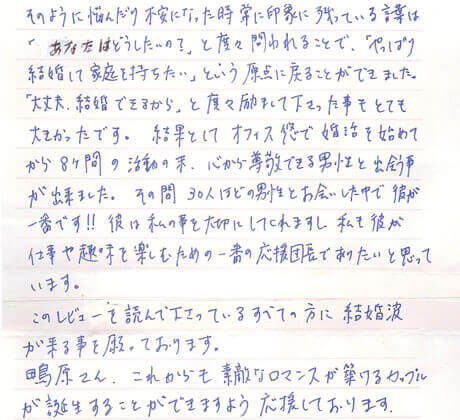 そのように悩んだり不安になった時 常に印象に残っている言葉は
「あなたはどうしたいの？」と度々問われることで、「やっぱり
結婚して家庭を持ちたい」という原点に戻ることができました。
「大丈夫、結婚できるから」と度々励まして下さった事もとても
大きかったです。 結果として オフィス悠で婚活を始めて
から8ヶ間の活動の末、心から尊敬できる男性と出会う事
が出来ました。 その間30人ほどの男性とお会いした中で彼が
一番です!! 彼は私の事を大切にしてくれますし 私も彼が
仕事や趣味を楽しむための一番の応援団長でありたいと思って
います。
このレビューを読んで下さっているすべての方に結婚波
が来る事を願っております。
鴨原さん、これからも素敵なロマンスが築けるカップル
が誕生することができますよう応援しております。